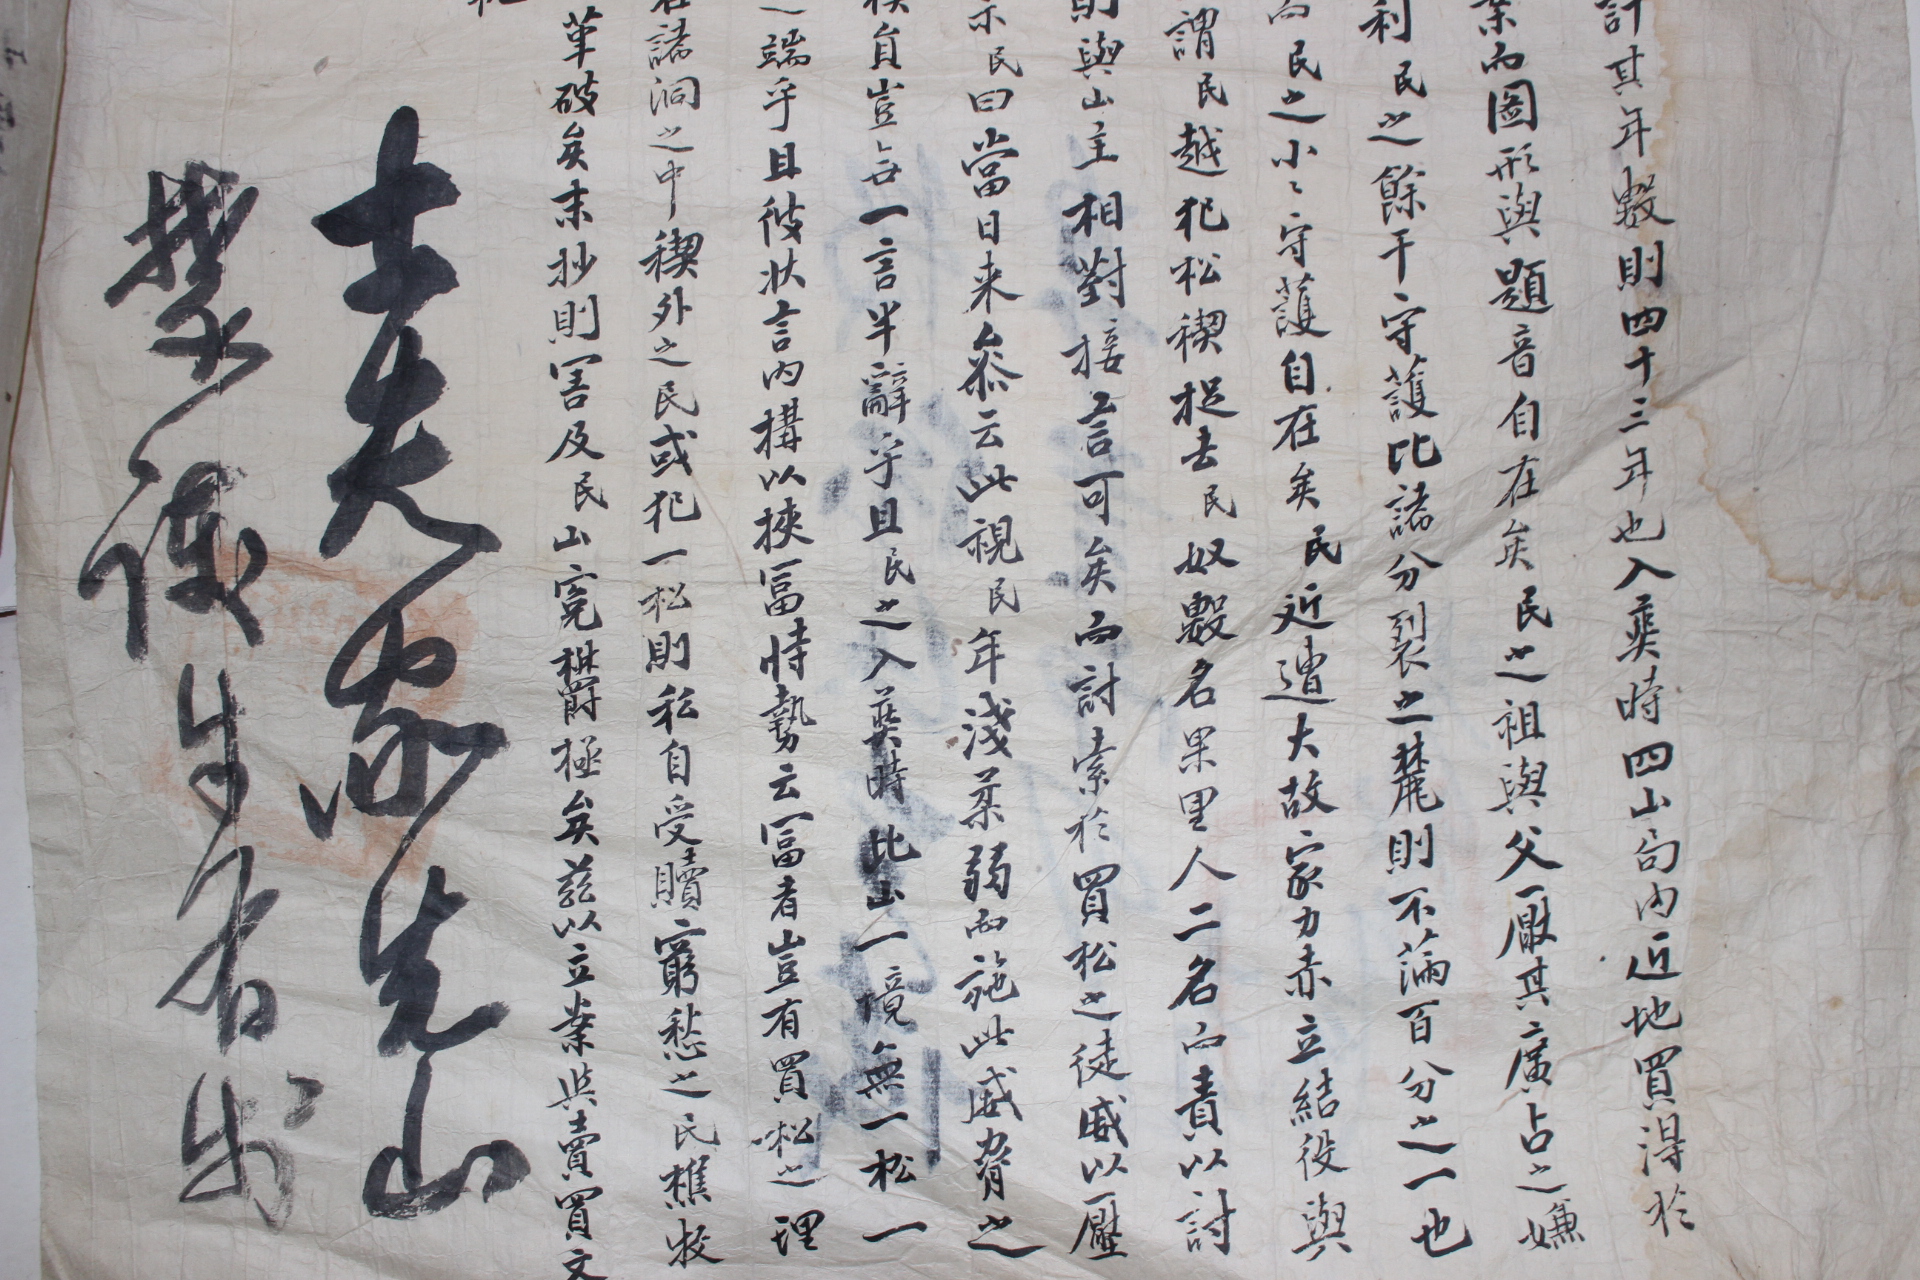 計其年數則四十三年也入葬時四山局內近地買得於
案而圖形與題音自在矣民之祖與父厭其廣占之嫌
利民之餘干守護比諸分裂之麓則不滿百分之一也
而民之小〻守護自在矣民近遭大故家力赤立結役與
謂民越犯松禊捉去民奴數名果里人二名而責以討
則與山主相對接言可矣而討索於買松之徒威以壓
示民曰當日来叅云此視民年淺柔弱而施此威脅之
禊員豈無一言半辭乎且民之入葬時比山一境無一松一
之端乎且彼狀言內搆以挾冨恃勢云冨者豈有買松之理
在諸洞之中禊外之民或犯一松則私自受贖窮愁之民樵牧
革破矣末抄則害及民山寃欝極矣玆以立案與賣買文
士夫家先山
禁護自有